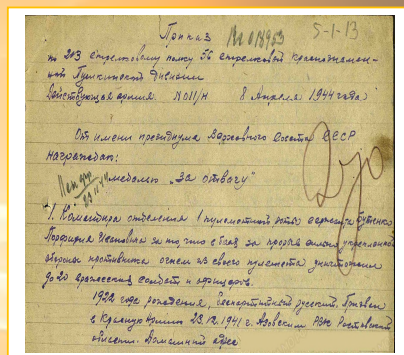 Приказ № 018953 5-1-13
по 203 стрелковому полку 56 стрелковой краснознамен-
ной Пушкинской дивизии
Действующая армия. №011/н 8 Апреля 1944 года
От имени президиума Верховного Совета СССР
награждаю:
медалью „За отвагу"
1. Командира отделения 1 пулеметной роты сержанта Бутенко
за то, что в боях за прорыв сильно укрепленной
обороны противника огнем из своего пулемета уничтожил
до 20 вражеских солдат и офицеров.
1922 года рождения, беспартийный русский. Призван
в Красную Армию 23.12.1941 г. Азовским РВК Ростовской
области. Домашний адрес